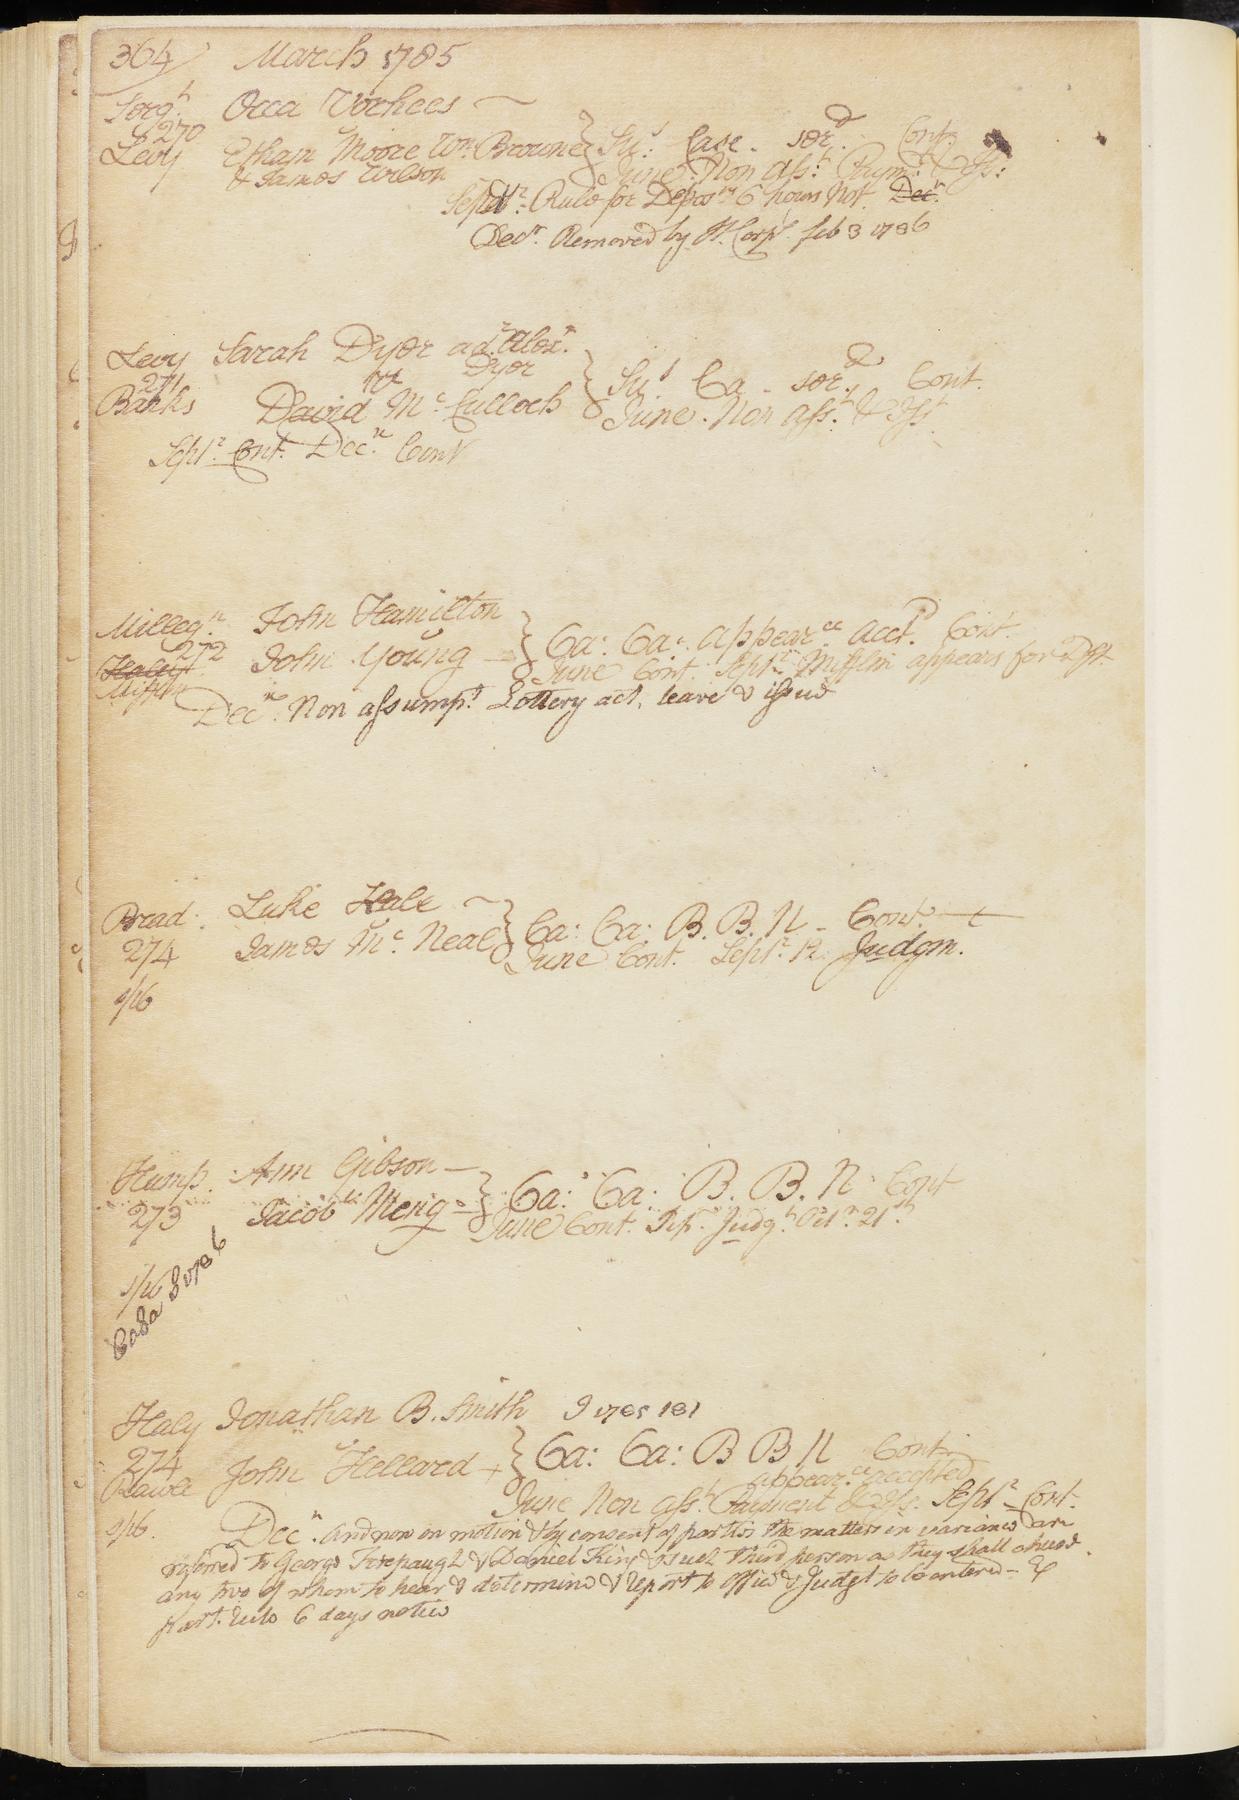 364 March 1785
Serg.t Occa Vorhees
270
Levy Etham Moore Wm. Browne Su.s Case - ser.d Cont.
& James Wilson June. Non ass.t Paym.t & Iss:
Sept.r Rule for Depos.n 6 hours Not. Dec.r
Dec.r Removed by H. Corp.s feb 3 1786
Levy Sarah Dyer ad.x Alex.r
271 vs Dyer
Banks David Mc. Culloch Su.s Ca - ser.d Cont.
June. Non ass.t & Iss.
Sept.r Cont. Dec.r Cont
Milleg.n John Hamilton
272 John Young Ca: Ca: appear.ce acct.d Cont.
Healy June Cont. Sept.r Mifflin appears for Deft.
Mifflin
Dec.r Non assump.t Lottery act, leave & issue
Brad: Luke Hale
274 James Mc. Neal Ca: Ca: B. B. N - Cont.
June Cont. Sept.r Judgm.
9/16
Hump. Ann Gibson
273 Jacob Meng Ca: Ca: B. B. N Cont
June Cont. Judg.t 21
1/16
Casa 1786
Haly Jonathan B. Smith
274 John Hellard Ca: Ca: B B N Cont.
Rawle appear.ce accepted
June Non ass.t Payment & Iss. Sept.r Cont.
9/16. Dec.r And now on motion & by consent of parties the matters in variance are
referred to George Forepaugh & Daniel King & such third person as they shall chuse
any two of whom to hear & determine & report to office & Judgt to be entered - &
part. rule 6 days notice